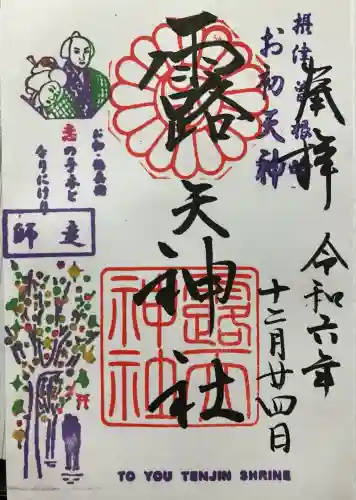 奉拝
摂津 曽根崎
お初天神
露天神社
令和六年
十二月廿四日
露天神社
お初・徳兵衛
恋の手本と
なりにけり
師走
TO YOU TENJIN SHRINE